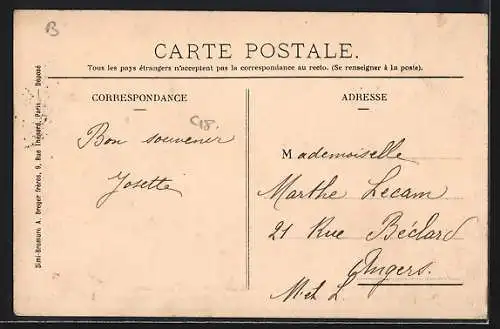 B
CARTE POSTALE.
Tous les pays étrangers n'acceptent pas la correspondance au recto. (Se renseigner à la poste).
CORRESPONDANCE
C18.
Bon souvenir
Josette
ADRESSE
Mademoiselle
Marthe Lecam
21 Rue Béclard
Angers.
M et L
Simi-Bromure A. Breger frères, 9, Rue Thénard, Paris. — Déposé